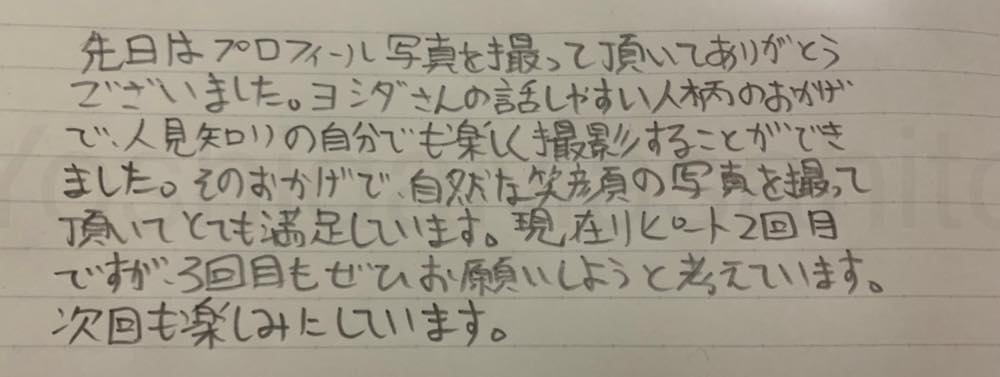 先日はプロフィール写真を撮って頂いてありがとう
ございました。ヨシダさんの話しやすい人柄のおかげ
で、人見知りの自分でも楽しく撮影することができ
ました。そのおかげで、自然な笑顔の写真を撮って
頂いてとても満足しています。現在リピート2回目
ですが、3回目もぜひお願いしようと考えています。
次回も楽しみにしています。